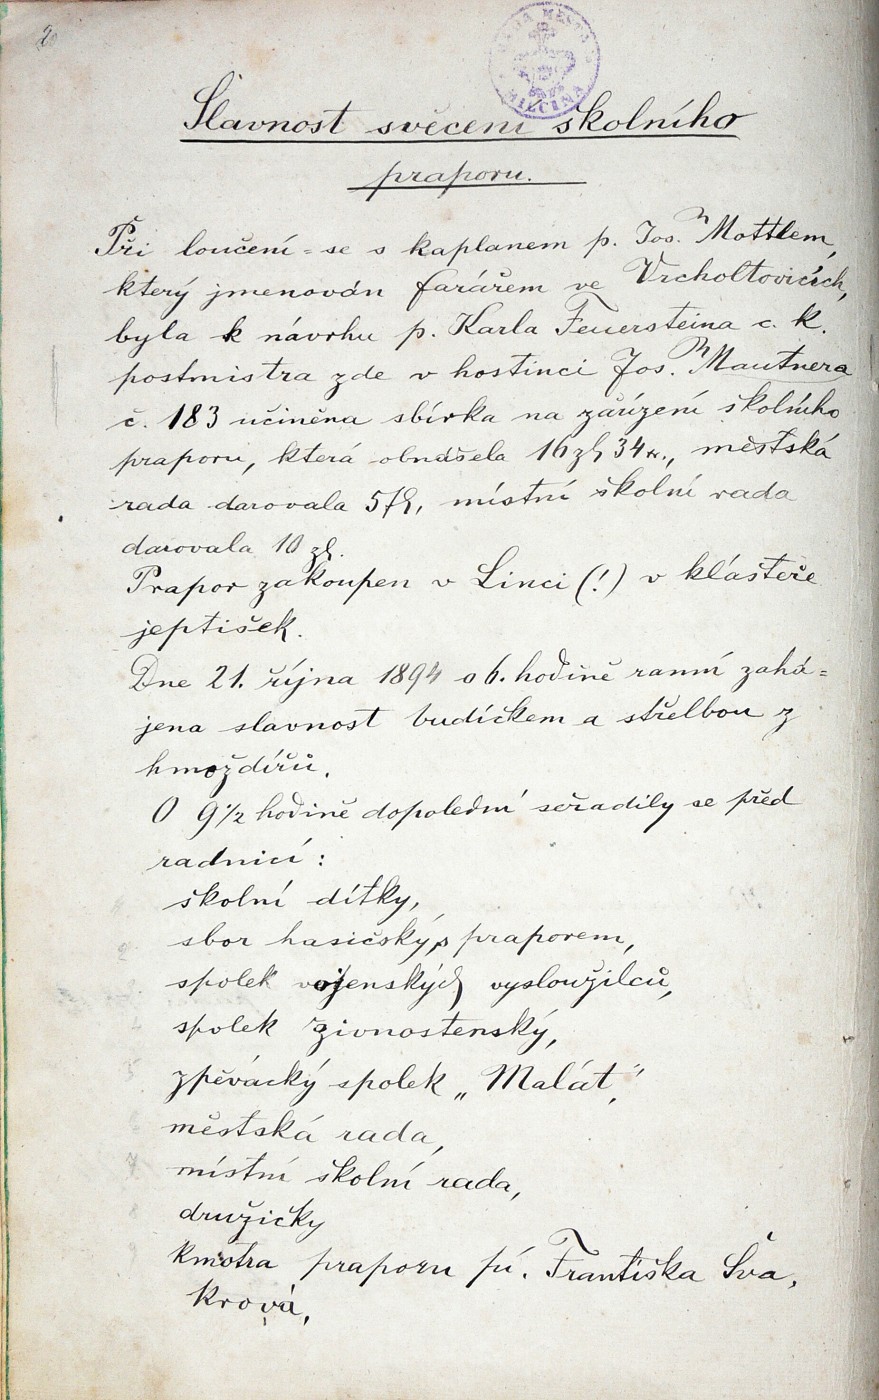 2.
MĚSTO MILČINA
Slavnost svěcení školního
praporu.
Při loučení-se s kaplanem p. Jos. Mottlem,
který jmenován farářem ve Vrcholtovicích,
byla k návrhu p. Karla Feuersteina c. k.
postmistra zde v hostinci Jos. Mautnera
č. 183 učiněna sbírka na zařízení školního
praporu, která obnášela 16 zl 34 kr., městská
rada darovala 5 zl, místní školní rada
darovala 10 zl.
Prapor zakoupen v Linci (!) v klášteře
jeptišek.
Dne 21. října 1894 o 6. hodině ranní zahá=
jena slavnost budíčkem a střelbou z
hmoždířů.
O 9 1/2 hodině dopolední seřadily se před
radnicí:
školní dítky,
sbor hasičský s praporem,
spolek vojenských vysloužilců,
spolek živnostenský,
zpěvácký spolek „Malát",
městská rada,
místní školní rada,
družičky
kmotra praporu pí. Františka Šva,
krová,